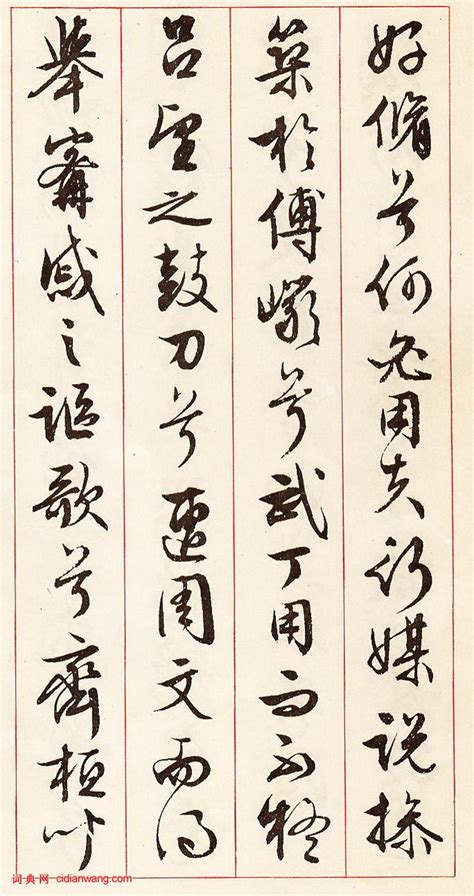 好脩兮何必用夫行媒説操
築於傅巖兮武丁用而不疑
吕望之鼓刀兮遭周文而得
舉甯戚之謳歌兮齊桓以
词·典·网 cidianwang.com